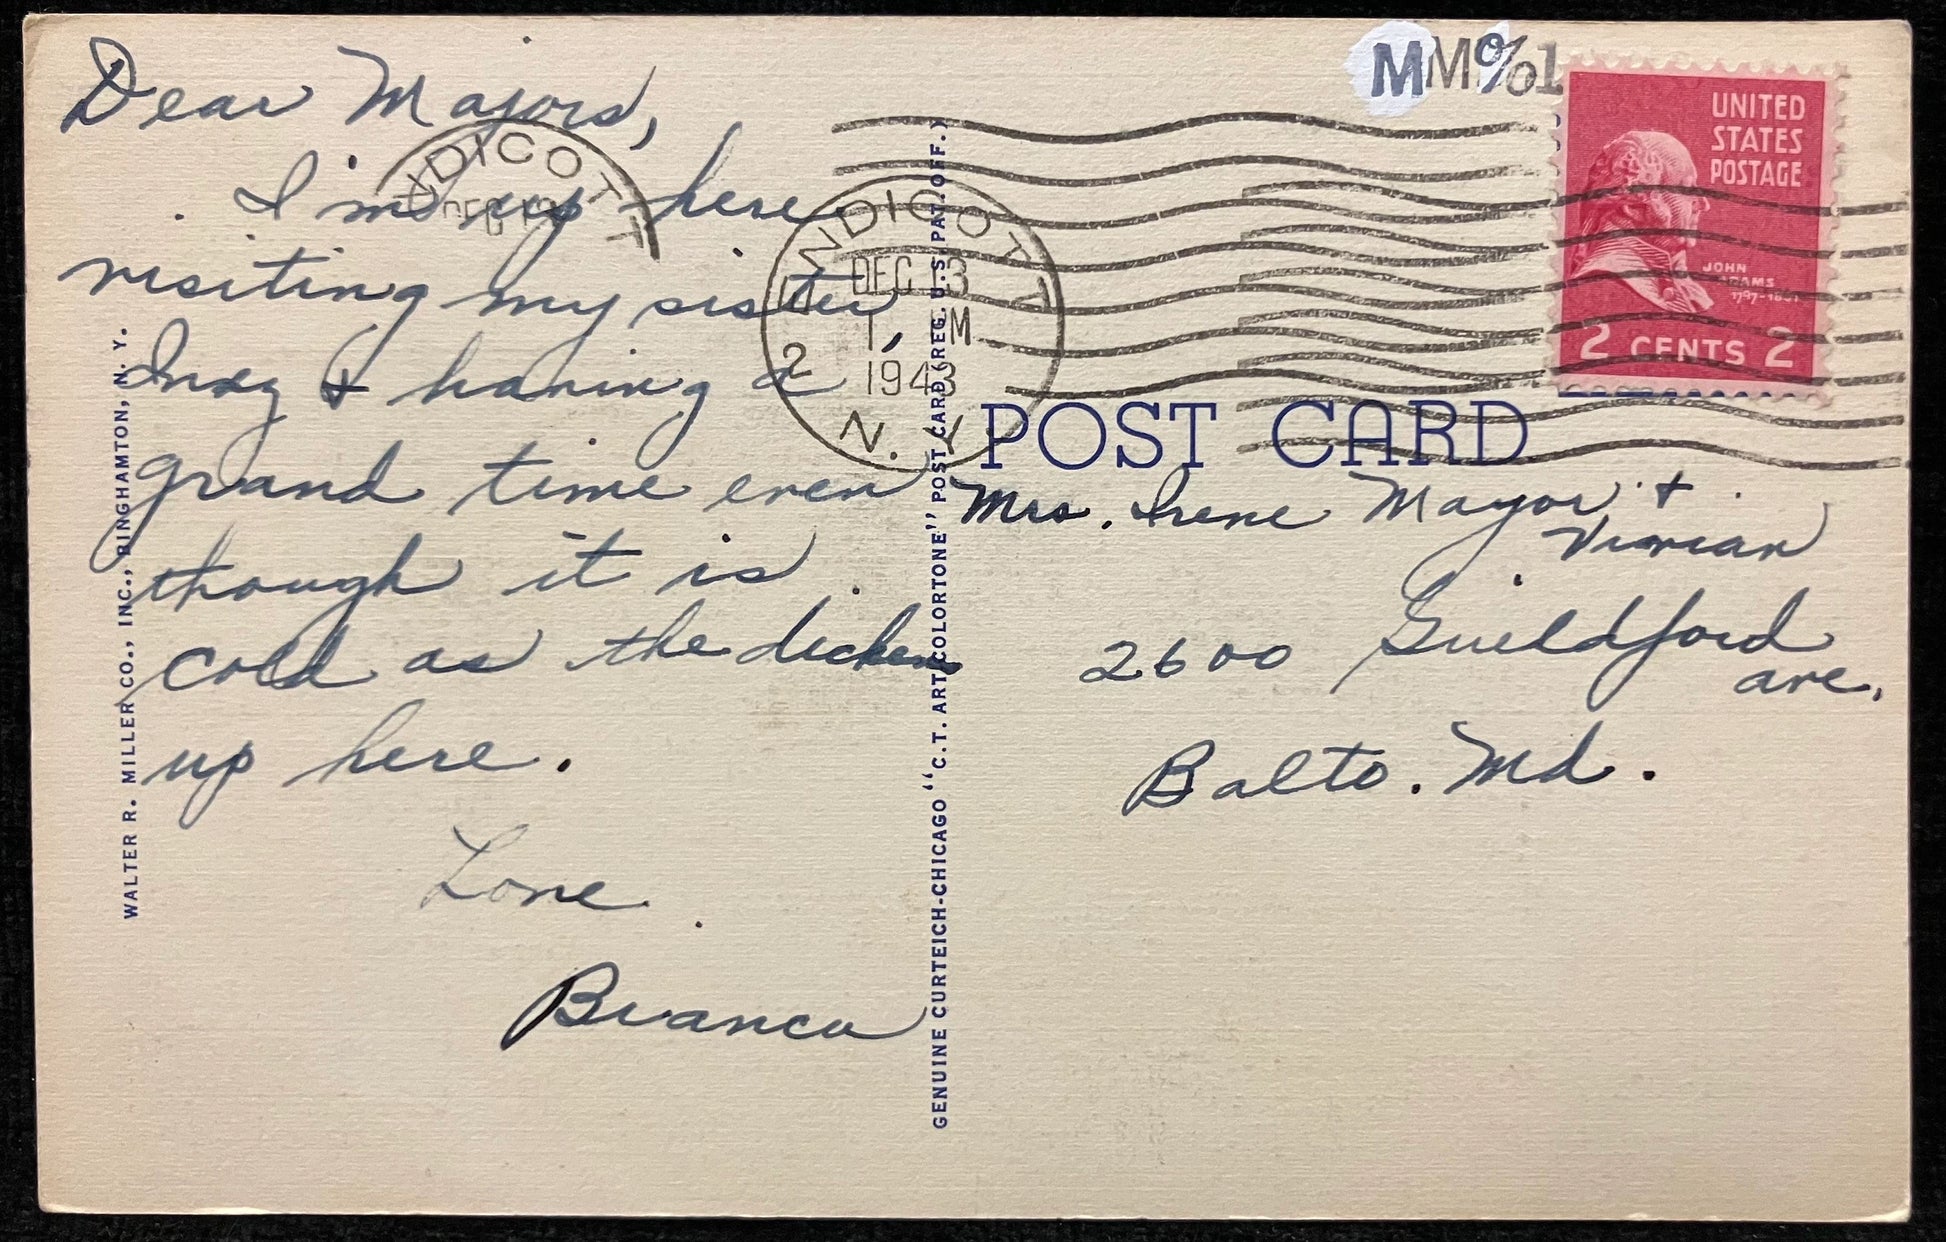 Dear Majors,
I'm up here
visiting my sister
Inez + having a
grand time even
though it is
cold as the dickens
up here.
Love
Bianca
WALTER R. MILLER CO., INC., BINGHAMTON, N. Y.
GENUINE CURTEICH-CHICAGO "C.T. ART-COLORTONE" POST CARD (REG. U.S. PAT. OFF.)
ENDICOTT
DEC 13
ENDICOTT 2
DEC 13
1 M
1943
N. Y.
UNITED
STATES
POSTAGE
JOHN
ADAMS
1797-1801
2 CENTS 2
POST CARD
Mrs. Irene Mayor +
Vivian
2600 Guildford
ave.
Balto. Md.